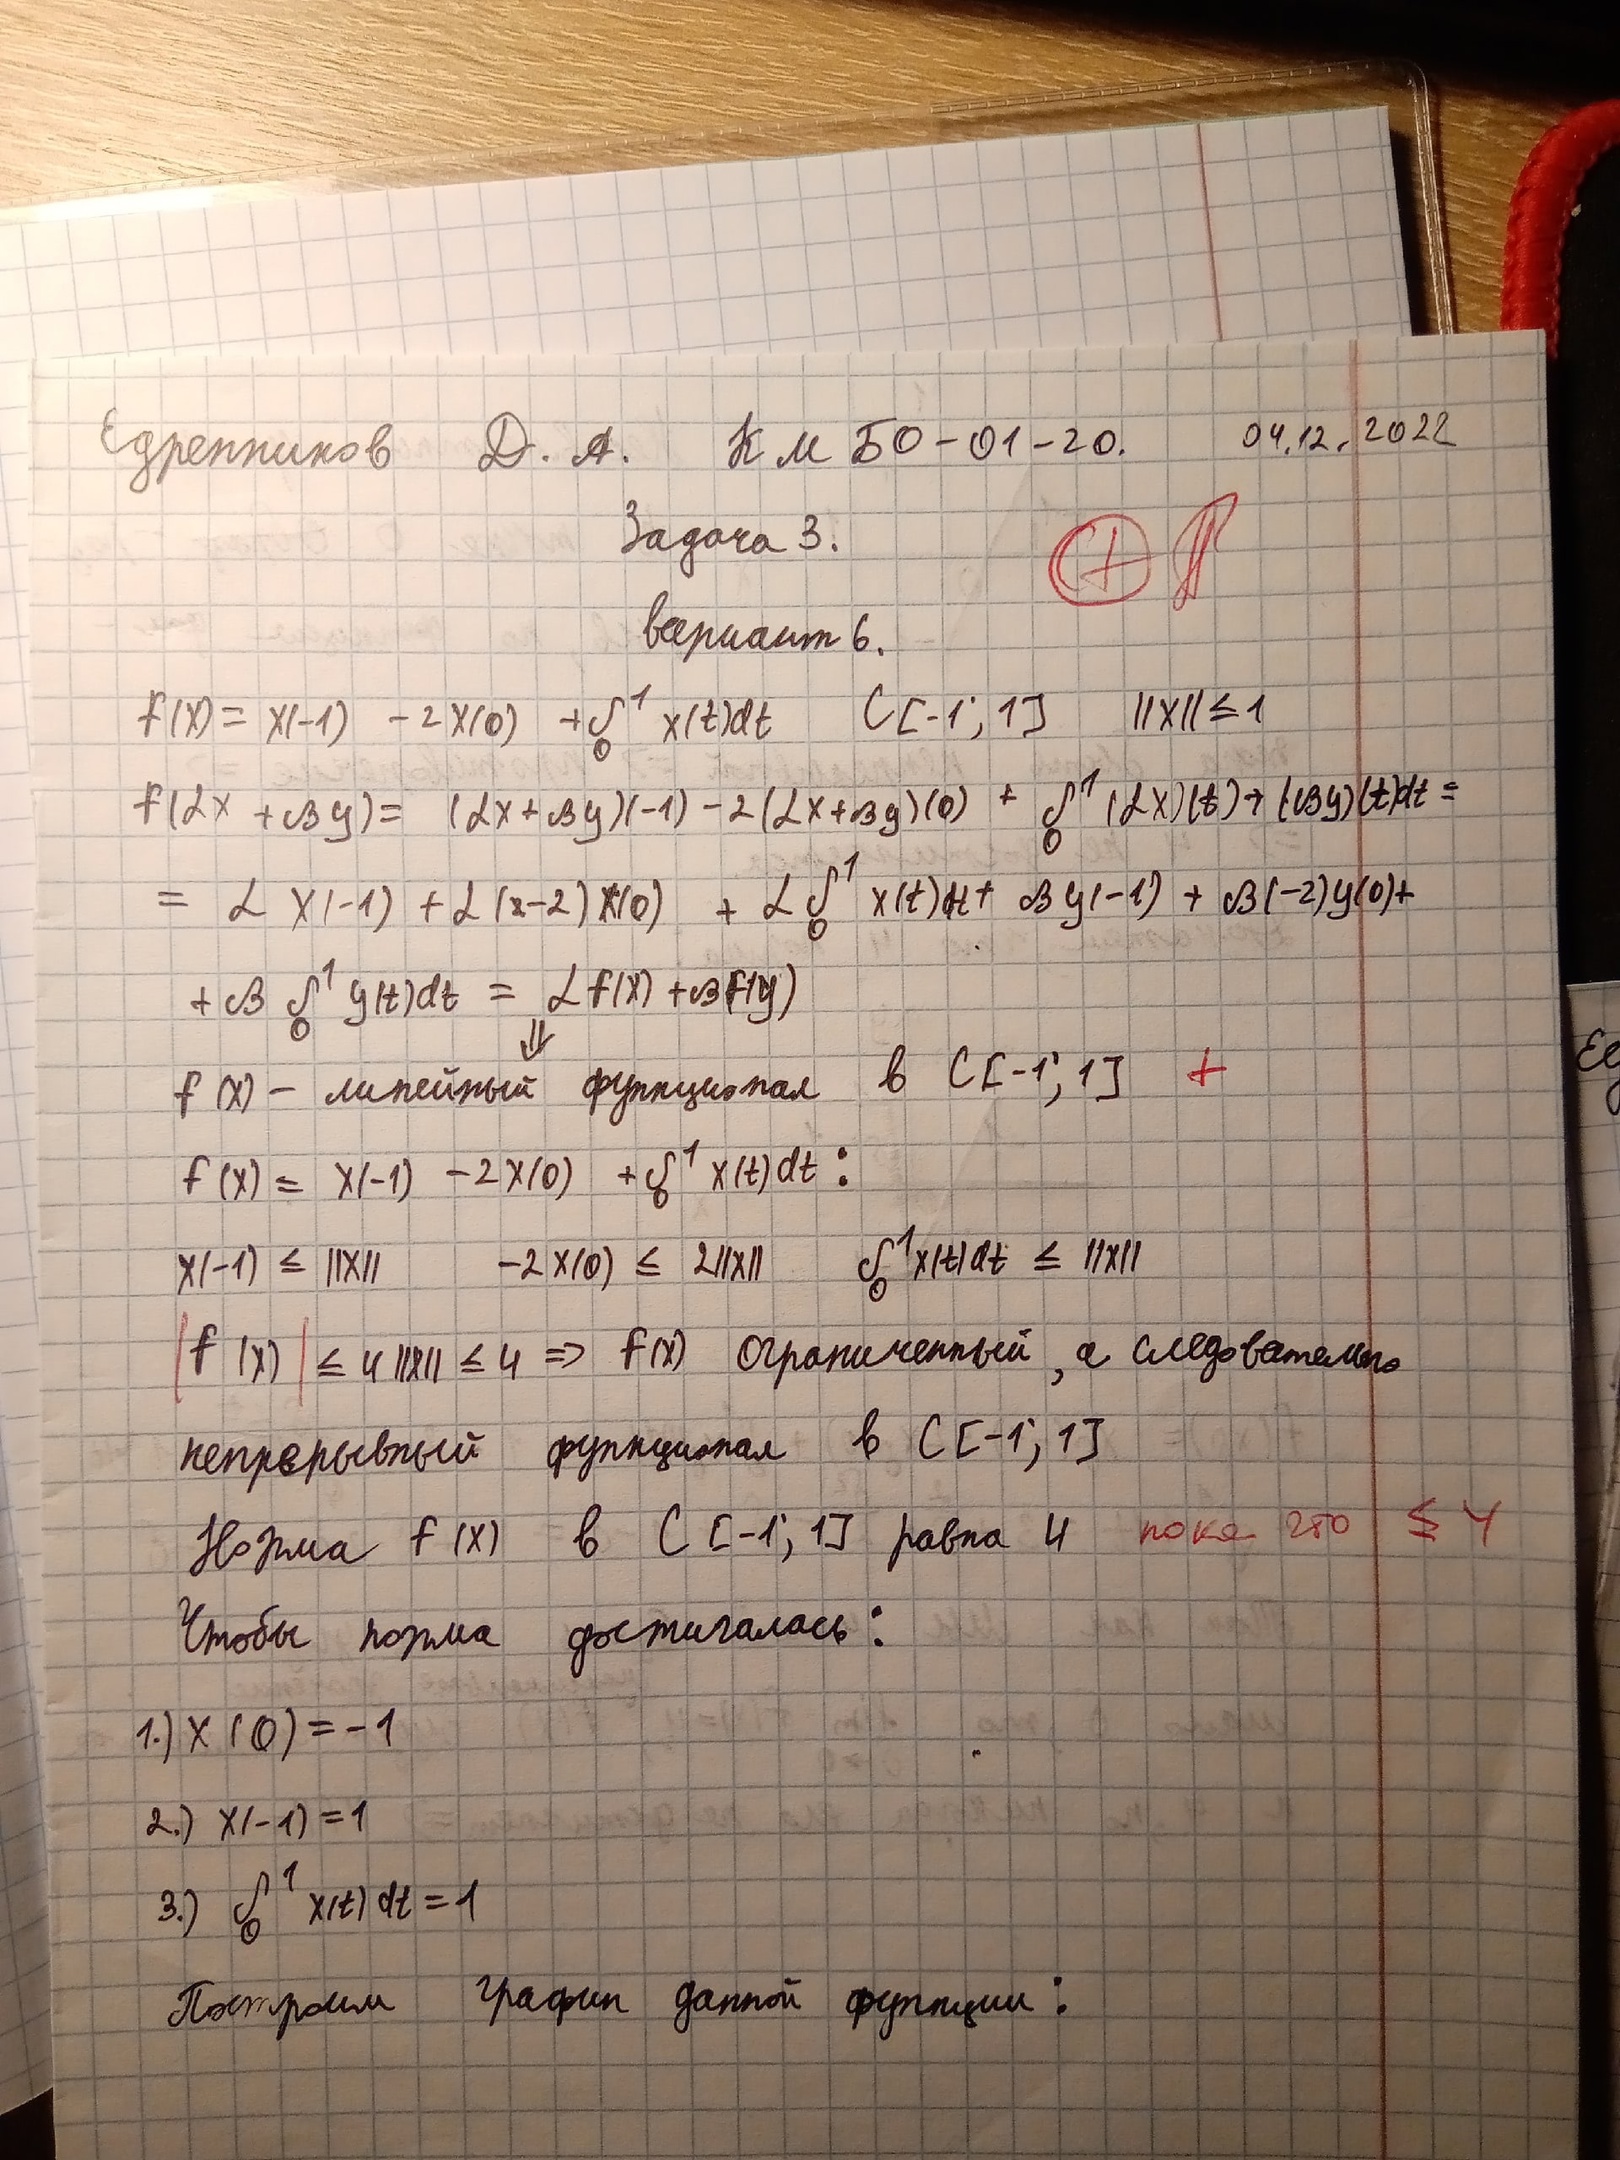 Едренников Д. А. КМБО-01-20. 04.12.2022
Задача 3.
вариант 6.
f(x) = x(-1) - 2x(0) + ∫₀¹ x(t)dt C[-1; 1] ||x|| ≤ 1
f(αx + βy) = (αx + βy)(-1) - 2(αx + βy)(0) + ∫₀¹ (αx)(t) + (βy)(t)dt =
= α x(-1) + α(-2)x(0) + α ∫₀¹ x(t)dt + βy(-1) + β(-2)y(0) +
+ β ∫₀¹ y(t)dt = αf(x) + βf(y)
⇓
f(x) – линейный функционал в C[-1; 1] +
f(x) = x(-1) - 2x(0) + ∫₀¹ x(t)dt :
x(-1) ≤ ||x|| -2x(0) ≤ 2||x|| ∫₀¹ x(t)dt ≤ ||x||
|f(x)| ≤ 4||x|| ≤ 4 ⇒ f(x) ограниченный, а следовательно
непрерывный функционал в C[-1; 1]
Норма f(x) в C[-1; 1] равна 4 пока что ≤ 4
Чтобы норма достигалась:
1.) x(0) = -1
2.) x(-1) = 1
3.) ∫₀¹ x(t)dt = 1
Построим график данной функции: